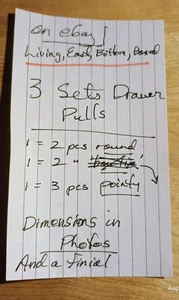 on ebay
Living, Earth, Bottom, Boxed
3 Sets Drawer
Pulls
1 = 2 pcs round
1 = 2 "
1 = 3 pcs pointy
Dimensions in
Photos
And a finial
Aug